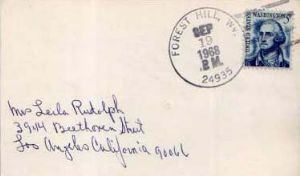 FOREST HILL, W.V.
SEP
19
1968
P.M.
24935
UNITED STATES
WASHINGTON 5¢
Mrs Leila Rudolph
3944 Beethoven Street
Los Angeles California 90066